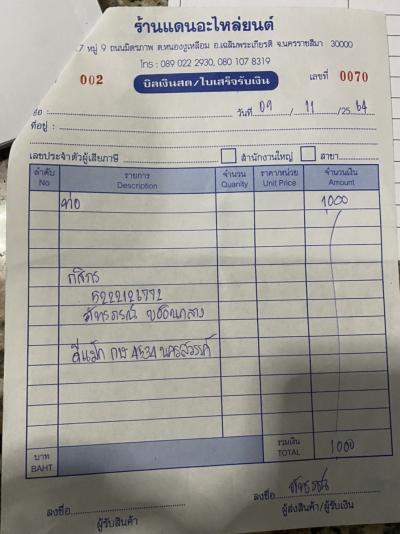 ร้านแดนอะไหล่ยนต์
7 หมู่ 9 ถนนมิตรภาพ ต.หนองงูเหลือม อ.เฉลิมพระเกียรติ จ.นครราชสีมา 30000
โทร : 089 022 2930, 080 107 8319
002 บิลเงินสด/ใบเสร็จรับเงิน เลขที่ 0070
ชื่อ : วันที่ 09 / 11 / 25 64
ที่อยู่ :
เลขประจำตัวผู้เสียภาษี สำนักงานใหญ่ สาขา
ลำดับ รายการ จำนวน ราคา/หน่วย จำนวนเงิน
No Description Quanity Unit Price Amount
ท่อ 1000
กสิกร
ภัทรภรณ์
ดีแม็ก กง 4534 นครสวรรค์
บาท รวมเงิน
BAHT. TOTAL 1000
ลงชื่อ ลงชื่อ
ผู้รับสินค้า ผู้ส่งสินค้า/ผู้รับเงิน